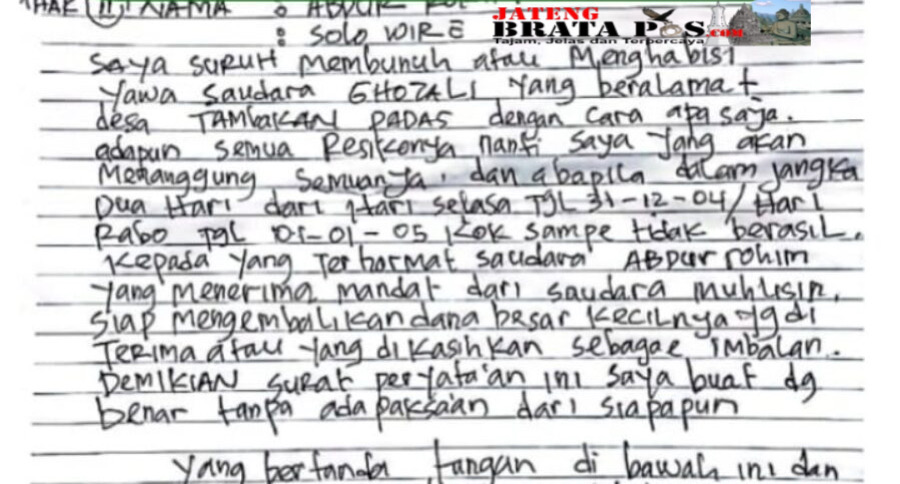 JATENG
BRATA POS.com
Tajam, Jelas dan Terpercaya
NAMA :
: SOLO WIRE
Saya SURUH Membunuh atau Menghabisi
Yawa Saudara GHOZALI Yang beralamat
desa TAMbaKAN PADAS dengan Cara apa saja.
adapun Semua Resikonya nanti Saya Yang akan
Menanggung Semuanya, dan abapila dalam jangka
Dua Hari dari Hari selasa TGL 31-12-04/Hari
Rabo TGL 01-01-05 Kok sampe tidak berasil.
Kepada Yang Terhormat saudara ABDUR rohim
Yang Menerima mandat dari saudara Muhlisin,
Siap Mengembalikan dana besar Kecilnya yg di
Terima atau Yang di Kasihkan sebagae imbalan.
DEMIKIAN Surat peryata'an ini Saya buat dg
benar tanpa ada paksa'an dari siapapun
Yang bertanda tangan di bawah ini dan